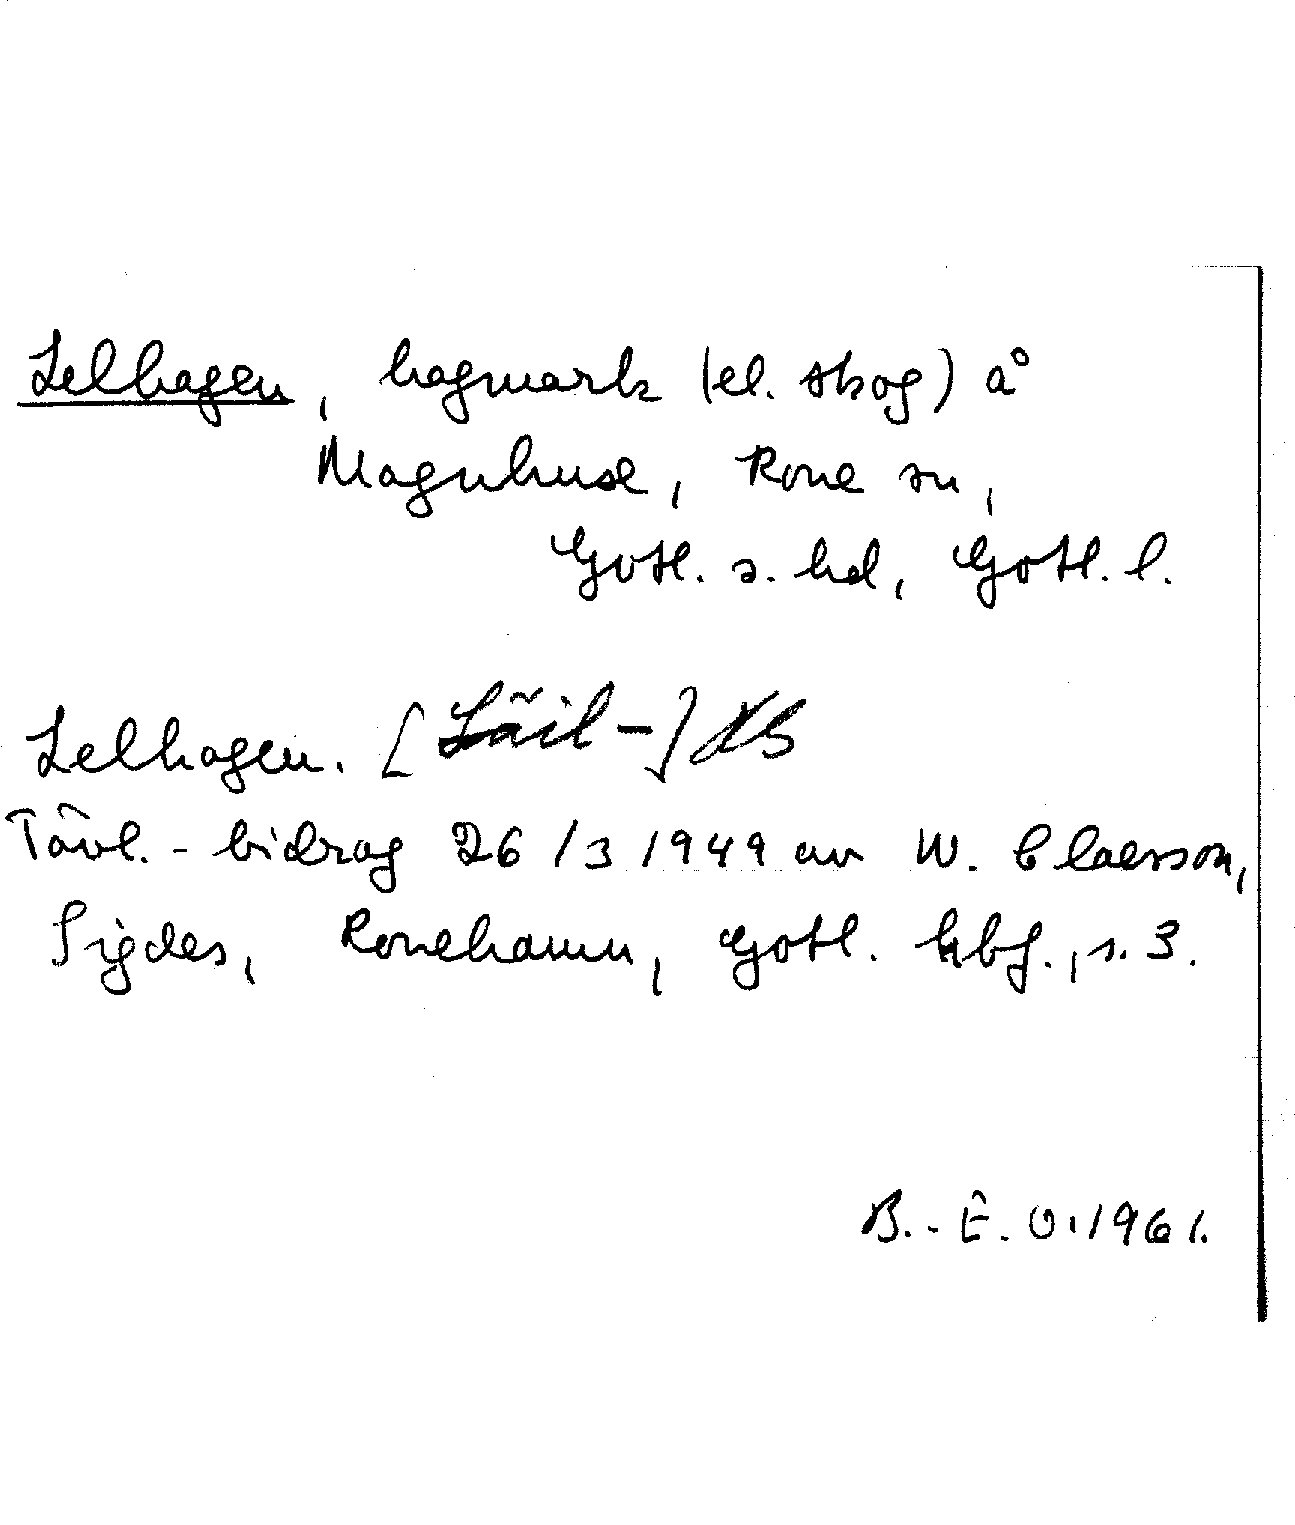 Lelhagen, hagmark (el. skog) å
Magnhuse, Rone sn,
Gotl. s. hd, Gotl. l.
Lelhagen. [Läil-]
Tävl.-bidrag 26/3 1949 av W. Claesson,
Sigdes, Ronehamn, Gotl. hbf., s. 3.
B.-E. O. 1961.